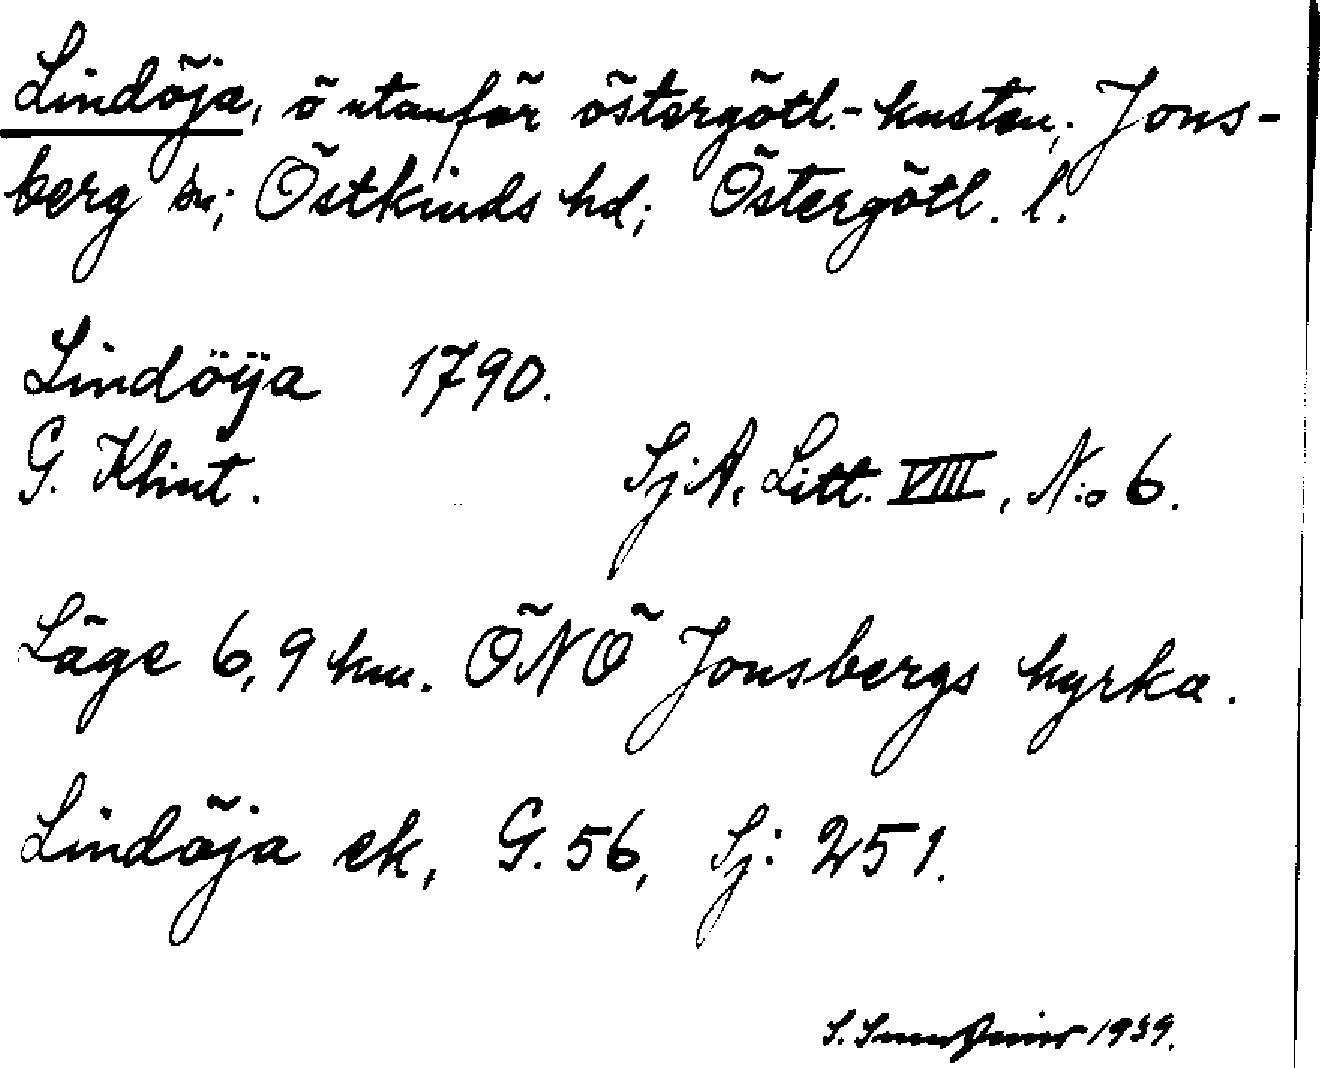 Lindöja, ö utanför östergötl.-kusten; Jons-
berg sn; Östkinds hd; Östergötl. l.
Lindöÿa 1790.
G. Klint.
SjA. Litt. VIII, N:o 6.
Läge 6,9 km. ÖNÖ Jonsbergs kyrka.
Lindöja ek, G. 56, Sj: 251.
S. 1939.